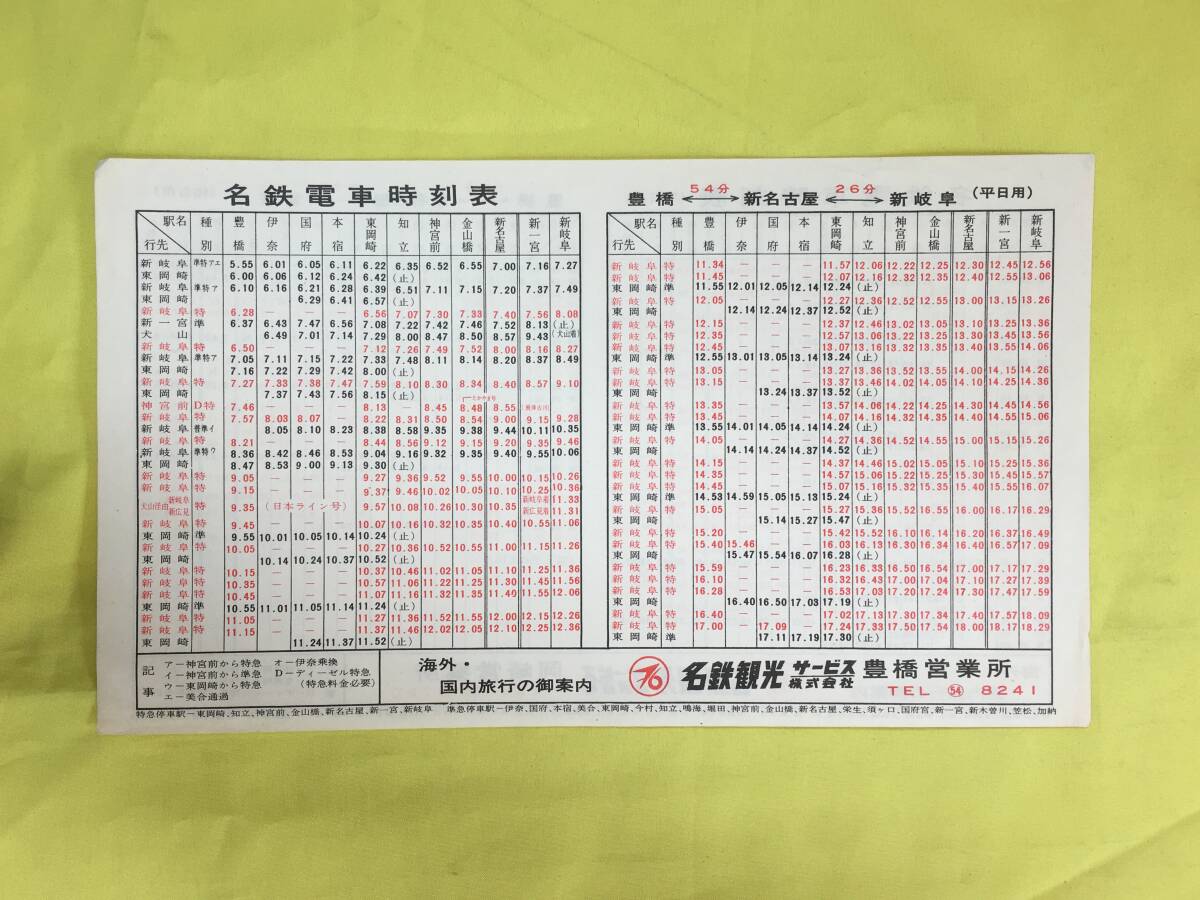 名鉄電車時刻表
豊橋 ←54分→ 新名古屋 ←26分→ 新岐阜 (平日用)
駅名 行先 種別 豊橋 伊奈 国府 本宿 東岡崎 知立 神宮前 金山橋 新名古屋 新一宮 新岐阜
新岐阜 準特アエ 5.55 6.01 6.05 6.11 6.22 6.35 6.52 6.55 7.00 7.16 7.27
東岡崎 6.00 6.06 6.12 6.24 6.42 (止)
新岐阜 準特ア 6.10 6.16 6.21 6.28 6.39 6.51 7.11 7.15 7.20 7.37 7.49
東岡崎 6.29 6.41 6.57 (止)
新岐阜 特 6.28 — — — 6.56 7.07 7.30 7.33 7.40 7.56 8.08
新一宮 準 6.37 6.43 7.47 6.56 7.08 7.22 7.42 7.46 7.52 8.13 (止)
犬山 6.49 7.01 7.14 7.29 8.00 8.47 8.50 8.57 9.43 (犬山着)
新岐阜 特 6.50 — — — 7.12 7.26 7.49 7.52 8.00 8.16 8.27
新岐阜 準特ア 7.05 7.11 7.15 7.22 7.33 7.48 8.11 8.14 8.20 8.37 8.49
東岡崎 7.16 7.22 7.29 7.42 8.00 (止)
新岐阜 特 7.27 7.33 7.38 7.47 7.59 8.10 8.30 8.34 8.40 8.57 9.10
東岡崎 7.37 7.43 7.56 8.15 (止)
神宮前 D特 7.46 — — — 8.13 8.45 8.48 8.55
新岐阜 特 7.57 8.03 8.07 8.22 8.31 8.50 8.54 9.00 9.15 9.28
新岐阜 普準イ 8.05 8.10 8.23 8.38 8.58 9.35 9.38 9.44 10.11 10.35
新岐阜 特 8.21 — — — 8.44 8.56 9.12 9.15 9.20 9.35 9.46
新岐阜 準特ウ 8.36 8.42 8.46 8.53 9.04 9.16 9.32 9.35 9.40 9.55 10.06
東岡崎 8.47 8.53 9.00 9.13 9.30 (止)
新岐阜 特 9.05 — — — 9.27 9.36 9.52 9.55 10.00 10.15 10.26
新岐阜 特 9.15 — — — 9.37 9.46 10.02 10.05 10.10 10.25 10.36
犬山経由 新岐阜 新広見 特 9.35 (日本ライン号) 9.57 10.08 10.26 10.30 10.35 新岐阜着 11.33 新広見着 11.31
新岐阜 特 9.45 — — — 10.07 10.16 10.32 10.35 10.40 10.55 11.06
東岡崎 準 9.55 10.01 10.05 10.14 10.24 (止)
新岐阜 特 10.05 — — — 10.27 10.36 10.52 10.55 11.00 11.15 11.26
東岡崎 10.14 10.24 10.37 10.52 (止)
新岐阜 特 10.15 — — — 10.37 10.46 11.02 11.05 11.10 11.25 11.36
新岐阜 特 10.35 — — — 10.57 11.06 11.22 11.25 11.30 11.45 11.56
新岐阜 特 10.45 — — — 11.07 11.16 11.32 11.35 11.40 11.55 12.06
東岡崎 準 10.55 11.01 11.05 11.14 11.24 (止)
新岐阜 特 11.05 — — — 11.27 11.36 11.52 11.55 12.00 12.15 12.26
新岐阜 特 11.15 — — — 11.37 11.46 12.02 12.05 12.10 12.25 12.36
東岡崎 11.24 11.37 11.52 (止)
駅名 行先 種別 豊橋 伊奈 国府 本宿 東岡崎 知立 神宮前 金山橋 新名古屋 新一宮 新岐阜
新岐阜 特 11.34 — — — 11.57 12.06 12.22 12.25 12.30 12.45 12.56
新岐阜 特 11.45 — — — 12.07 12.16 12.32 12.35 12.40 12.55 13.06
東岡崎 準 11.55 12.01 12.05 12.14 12.24 (止)
新岐阜 特 12.05 — — — 12.27 12.36 12.52 12.55 13.00 13.15 13.26
東岡崎 12.14 12.24 12.37 12.52 (止)
新岐阜 特 12.15 — — — 12.37 12.46 13.02 13.05 13.10 13.25 13.36
新岐阜 特 12.35 — — — 12.57 13.06 13.22 13.25 13.30 13.45 13.56
新岐阜 特 12.45 — — — 13.07 13.16 13.32 13.35 13.40 13.55 14.06
東岡崎 準 12.55 13.01 13.05 13.14 13.24 (止)
新岐阜 特 13.05 — — — 13.27 13.36 13.52 13.55 14.00 14.15 14.26
新岐阜 特 13.15 — — — 13.37 13.46 14.02 14.05 14.10 14.25 14.36
東岡崎 13.24 13.37 13.52 (止)
新岐阜 特 13.35 — — — 13.57 14.06 14.22 14.25 14.30 14.45 14.56
新岐阜 特 13.45 — — — 14.07 14.16 14.32 14.35 14.40 14.55 15.06
東岡崎 準 13.55 14.01 14.05 14.14 14.24 (止)
新岐阜 特 14.05 — — — 14.27 14.36 14.52 14.55 15.00 15.15 15.26
東岡崎 14.14 14.24 14.37 14.52 (止)
新岐阜 特 14.15 — — — 14.37 14.46 15.02 15.05 15.10 15.25 15.36
新岐阜 特 14.35 — — — 14.57 15.06 15.22 15.25 15.30 15.45 15.57
新岐阜 特 14.45 — — — 15.07 15.16 15.32 15.35 15.40 15.55 16.07
東岡崎 準 14.53 14.59 15.05 15.13 15.24 (止)
新岐阜 特 15.05 — — — 15.27 15.36 15.52 15.55 16.00 16.17 16.29
東岡崎 15.14 15.27 15.47 (止)
新岐阜 特 15.20 — — — 15.42 15.52 16.10 16.14 16.20 16.37 16.49
新岐阜 特 15.40 15.46 — — 16.03 16.13 16.30 16.34 16.40 16.57 17.09
東岡崎 15.47 15.54 16.07 16.28 (止)
新岐阜 特 15.59 — — — 16.23 16.33 16.50 16.54 17.00 17.17 17.29
新岐阜 特 16.10 — — — 16.32 16.43 17.00 17.04 17.10 17.27 17.39
新岐阜 特 16.28 — — — 16.53 17.03 17.20 17.24 17.30 17.47 17.59
東岡崎 16.40 16.50 17.03 17.19 (止)
新岐阜 特 16.40 — — — 17.02 17.13 17.30 17.34 17.40 17.57 18.09
新岐阜 特 17.00 — 17.09 — 17.24 17.33 17.50 17.54 18.00 18.17 18.29
東岡崎 準 17.11 17.19 17.30 (止)
記事
アー神宮前から特急 オー伊奈乗換
イー神宮前から準急 Dーディーゼル特急
ウー東岡崎から特急 (特急料金必要)
エー美合通過
海外・
国内旅行の御案内
名鉄観光サービス株式会社 豊橋営業所
TEL 54 8241
特急停車駅ー東岡崎、知立、神宮前、金山橋、新名古屋、新一宮、新岐阜 準急停車駅ー伊奈、国府、本宿、美合、東岡崎、今村、知立、鳴海、堀田、神宮前、金山橋、新名古屋、栄生、須ヶ口、国府宮、新一宮、新木曽川、笠松、加納